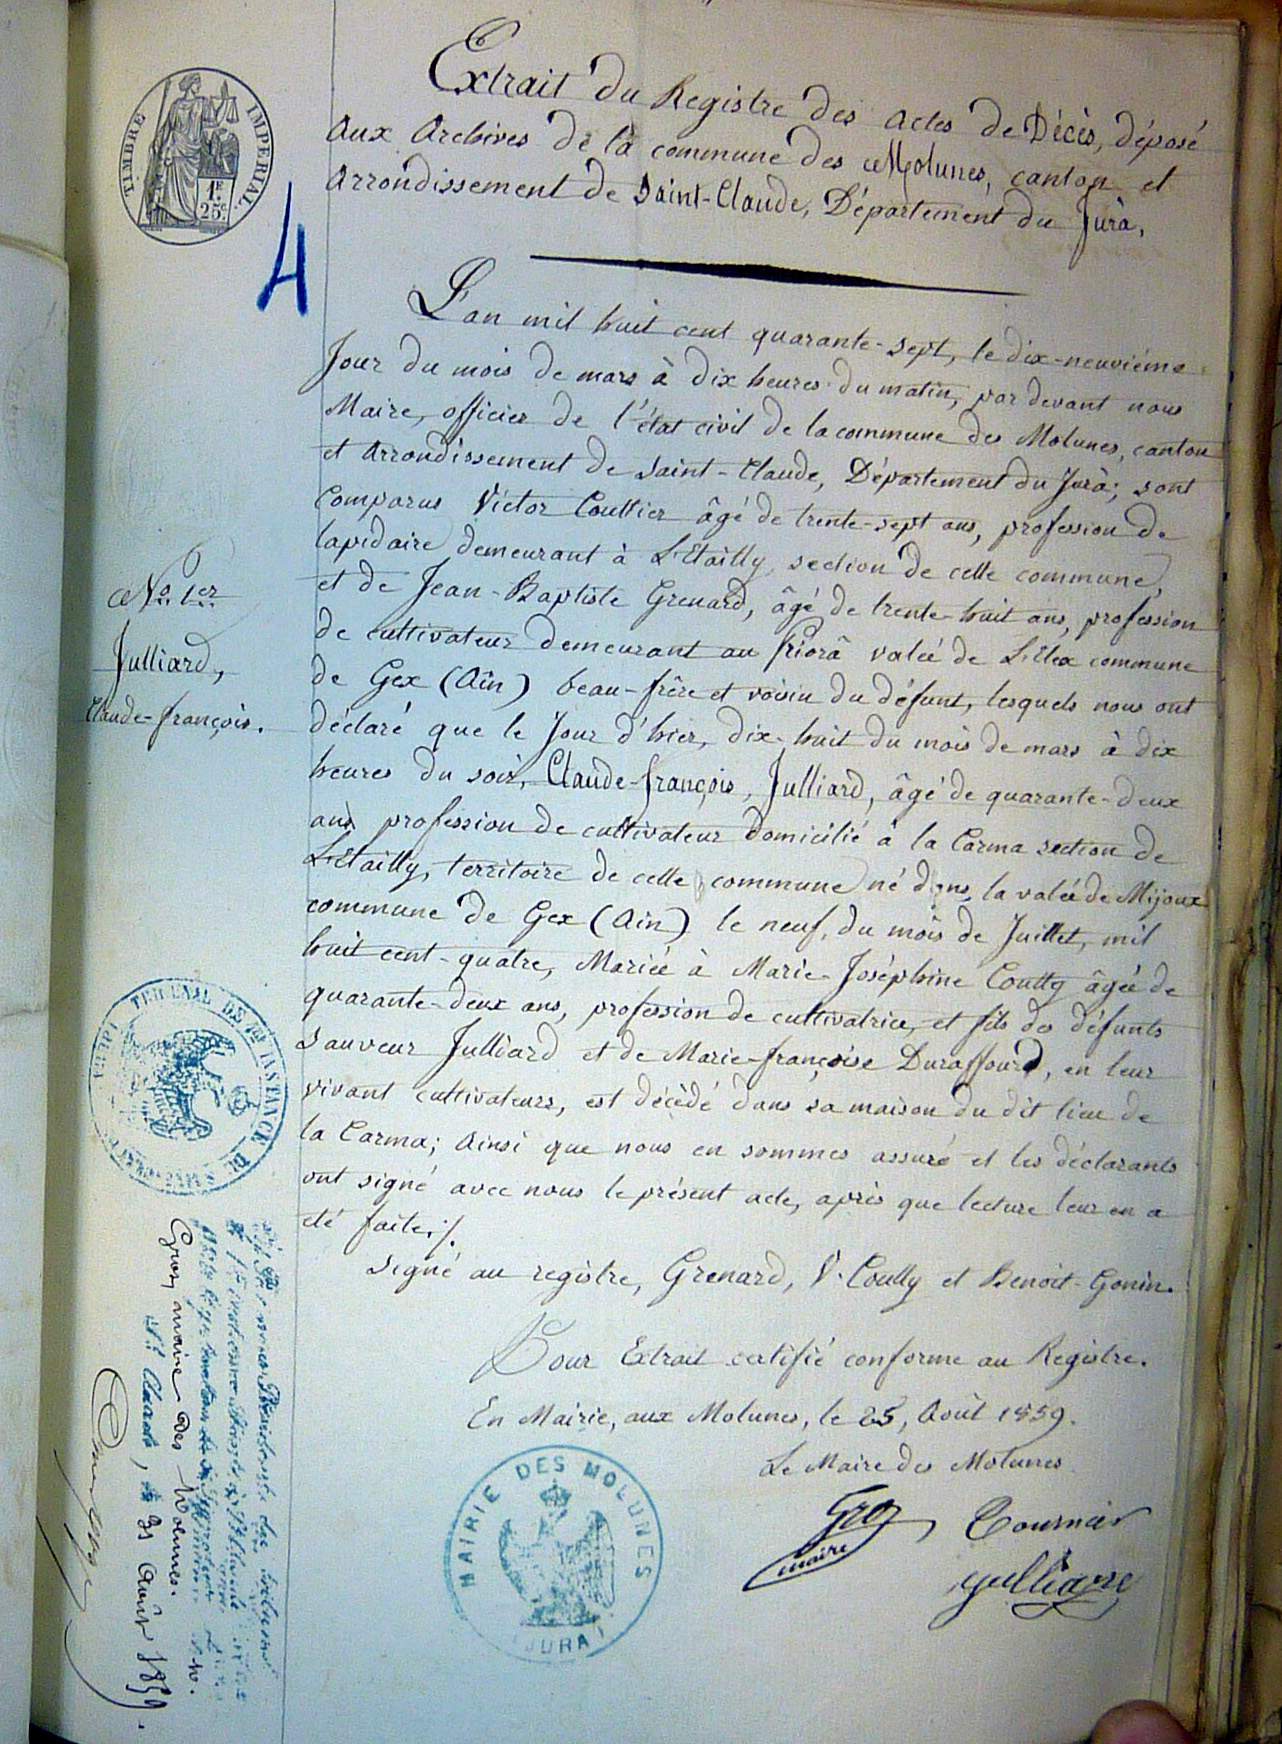 TIMBRE IMPERIAL
1F.
25c.
4
Extrait du Registre des actes de Décès, déposé
Aux Archives de la commune des Molunes, canton et
Arrondissement de Saint-Claude, Département du Jura,
L'an mil huit cent quarante-sept, le dix-neuvième
Jour du mois de mars à dix heures du matin, par devant nous
Maire, officier de l'état civil de la commune des Molunes, canton
et Arrondissement de Saint-Claude, Département du Jura; sont
Comparus Victor Couttier âgé de trente-sept ans, profession de
lapidaire demeurant à L'Etailly section de cette commune,
et de Jean-Baptiste Grenard, âgé de trente-huit ans, profession
de cultivateur demeurant au Friorâ valeé de L'Elex commune
de Gex (Aîn) beau-frère et voisin du défunt, lesquels nous ont
déclaré que le Jour d'hier, dix-huit du mois de mars à dix
heures du soir, Claude-françois, Julliard, âgé de quarante-deux
ans profession de cultivateur domicilié à la Carma section de
L'Etailly, territoire de cette commune né dans la valeé de Mijoux
commune de Gex (Ain) le neuf, du mois de Juillet, mil
huit cent-quatre, Marieé à Marie-Joséphine Coutty âgeé de
quarante-deux ans, profession de cultivatrice, et fils des défunts
Sauveur Julliard et de Marie-françoise Duraffourd, en leur
vivant cultivateurs, est décédé dans sa maison du dit lieu de
la Carma; Ainsi que nous en sommes assuré et les déclarants
ont signé avec nous le présent acte, après que lecture leur en a
été faite ./.
Signé au registre, Grenard, V. Coutty et Benoit-Gonin.
Pour Extrait certifié conforme au Registre.
En Mairie, aux Molunes, le 25, Août 1859.
Le Maire des Molunes
Gros maire
Tournier
Julliard
No. 1er
Julliard,
Claude-françois.
TRIBUNAL DE 1ère INSTANCE DE
Gros, maire des Molunes.
St Claude, le 31 août 1859.
MAIRIE DES MOLUNES
(JURA)